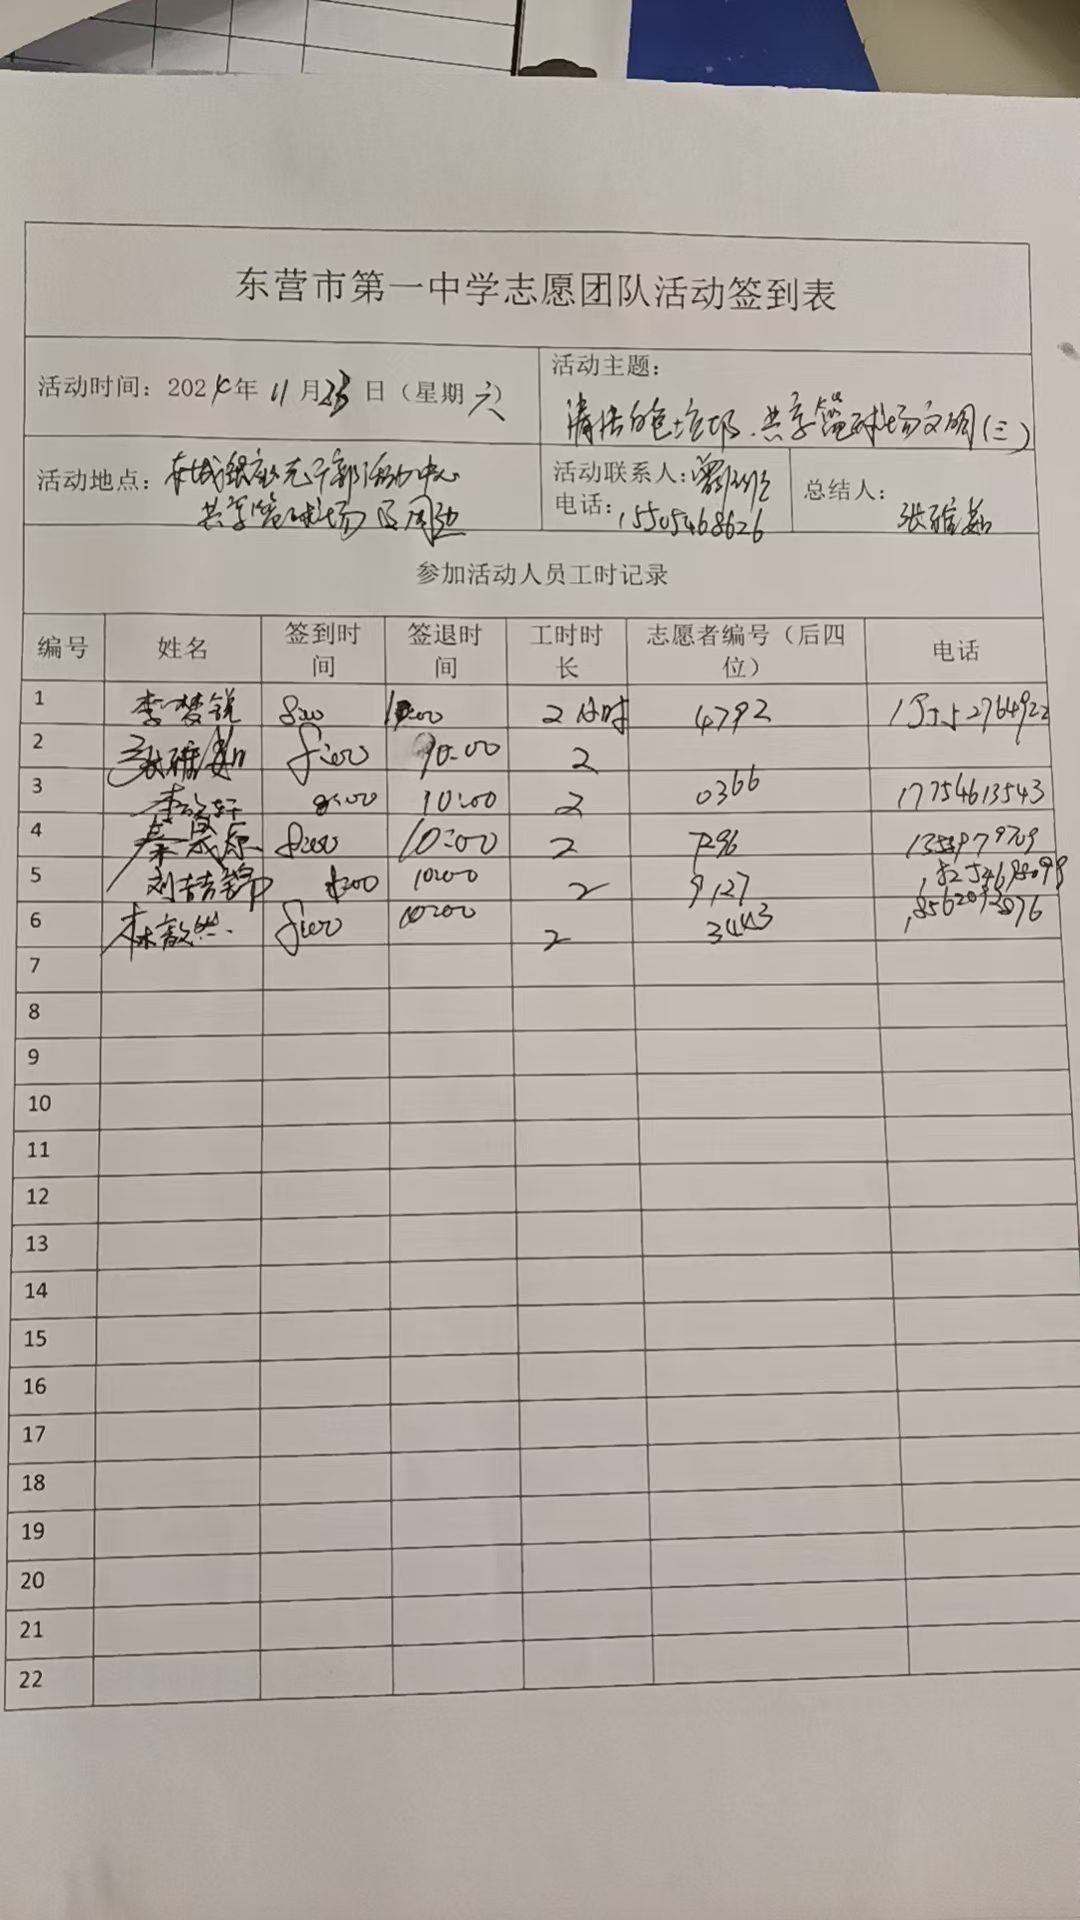 东营市第一中学志愿团队活动签到表
活动时间：2024年 11月23日（星期六）
活动主题：
清洁白色垃圾、共享篮球场文明(三)
活动地点：东城银座老干部活动中心
共享篮球场及周边
活动联系人：
电话：15505468626
总结人：
张雅茹
参加活动人员工时记录
编号 姓名 签到时间 签退时间 工时时长 志愿者编号（后四位） 电话
1 李梦锐 8:00 10:00 2小时 4792
2 张雅茹 8:00 10:00 2
3 8:00 10:00 2 0366 17754613543
4 秦晟原 8:00 10:00 2 7296
5 刘喆锦 8:00 10:00 2 9127
6 林歆然 8:00 10:00 2 3443
7
8
9
10
11
12
13
14
15
16
17
18
19
20
21
22